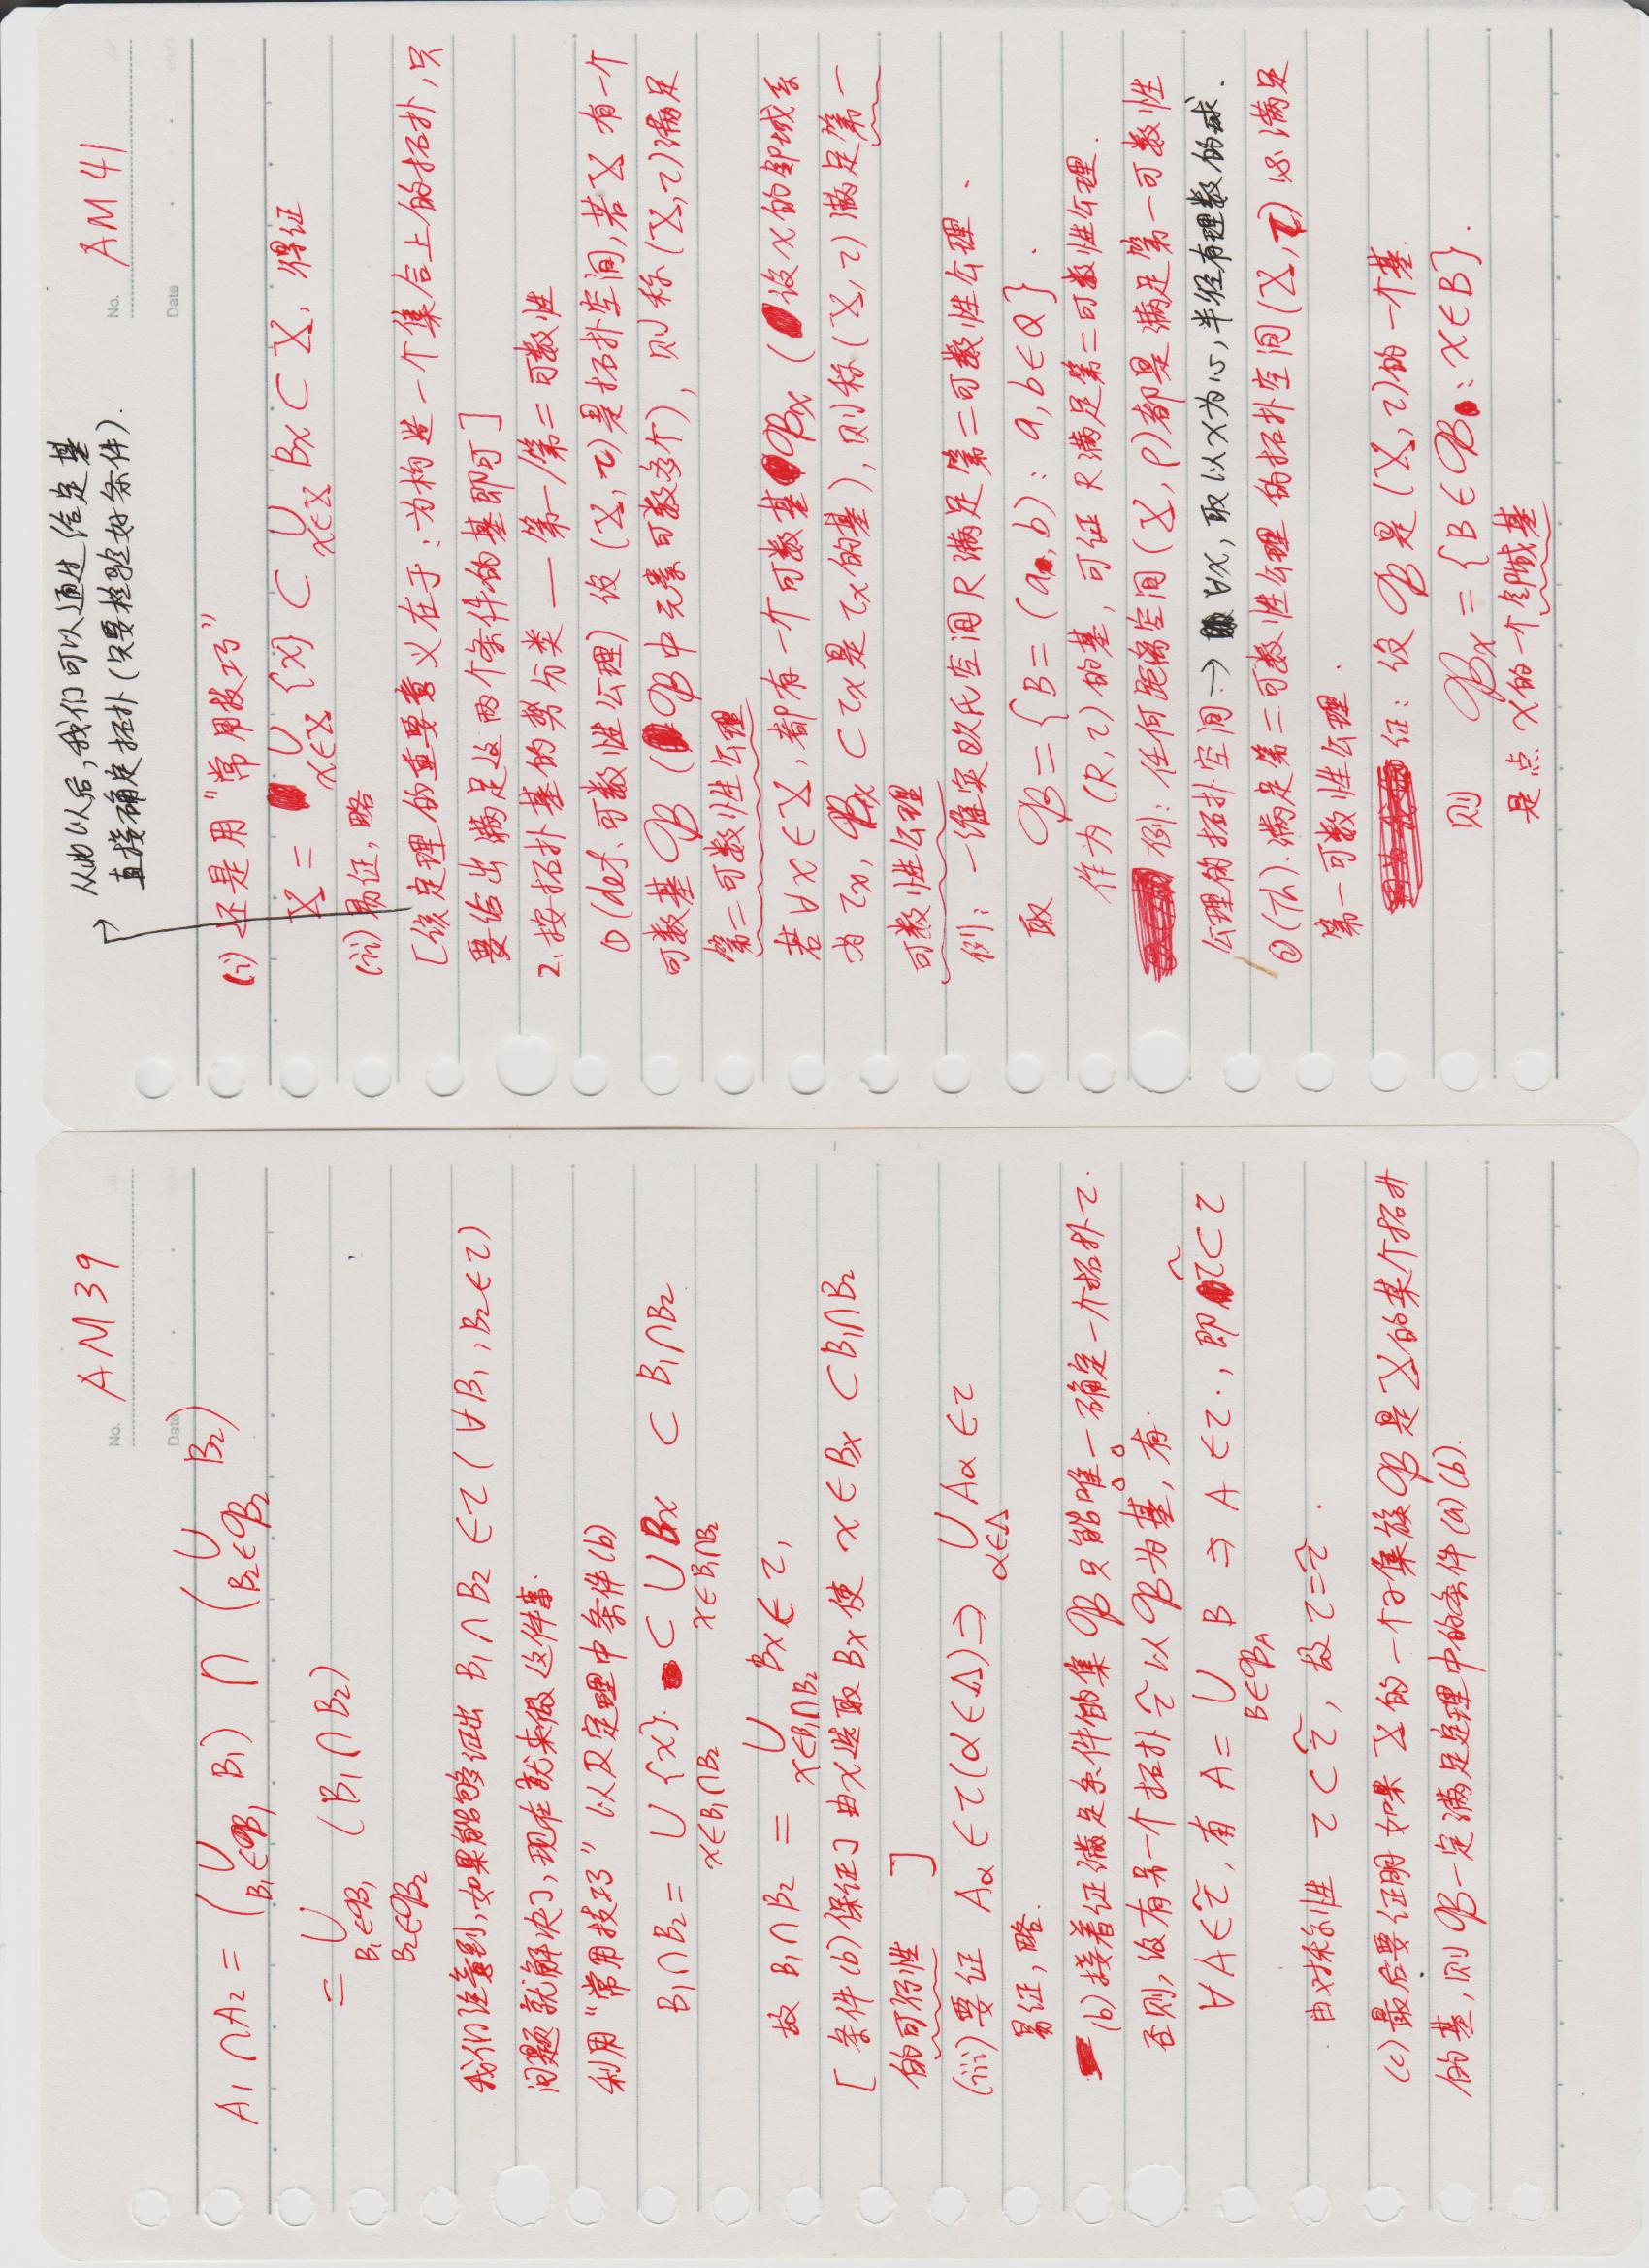 No. AM39
Date
A₁∩A₂ = (∪ B₁) ∩ (∪ B₂)
B₁∈𝓑₁ B₂∈𝓑₂
= ∪ (B₁∩B₂)
B₁∈𝓑₁
B₂∈𝓑₂
我们注意到,如果能够证出 B₁∩B₂ ∈τ (∀B₁,B₂∈τ)
问题就解决了,现在就来做这件事.
利用“常用技巧” 以及定理中条件(b)
B₁∩B₂ = ∪ {x} ⊂ ∪ Bx ⊂ B₁∩B₂
x∈B₁∩B₂ x∈B₁∩B₂
故 B₁∩B₂ = ∪ Bx ∈ τ,
x∈B₁∩B₂
[条件(b)保证]由x选取Bx使 x∈Bx ⊂B₁∩B₂
的可行性 ]
(iii)要证 Aα∈τ(α∈Λ)⇒ ∪ Aα ∈τ
α∈Λ
易证,略.
(b)接着证满足条件的集𝓑只能唯一确定一个拓扑τ.
否则,设有另一个拓扑τ̃以𝓑为基,有.
∀A∈τ̃,有 A= ∪ B ⇒ A ∈τ.,即τ̃⊂τ
B∈𝓑_A
由对称性 τ⊂τ̃,故τ=τ̃.
(c)最后要证明如果X的一个子集族𝓑是X的某个拓扑
的基,则𝓑一定满足定理中的条件(a)(b).
从此以后,我们可以通过给定基
直接确定拓扑(只要检验好条件).
No. AM41
Date
(i)还是用“常用技巧”
X = ∪ {x} ⊂ ∪ Bx ⊂ X, 得证
x∈X x∈X
(ii)易证,略
[该定理的重要意义在于:为构造一个集合上的拓扑,只
要给出满足这两个条件的基即可]
2.按拓扑基的势分类 — 第一/第二可数性
①(def.可数性公理)设(X,τ)是拓扑空间,若X有一个
可数基𝓑(𝓑中元素可数多个),则称(X,τ)满足
第二可数性公理
若∀x∈X,都有一个可数基𝓑x(设x的邻域系
为τx,𝓑x⊂τx是τx的基),则称(X,τ)满足第一
可数性公理
例:一维实欧氏空间R满足第二可数性公理.
取 𝓑={B=(a,b):a,b∈Q}.
作为(R,τ)的基,可证R满足第二可数性公理.
例:任何距离空间(X,ρ)都是满足第一可数性
公理的拓扑空间.→ ∀x,取以x为心,半径有理数的球.
②(Th).满足第二可数性公理的拓扑空间(X,τ)必满足
第一可数性公理.
证:设𝓑是(X,τ)的一个基.
则 𝓑x={B∈𝓑:x∈B}.
是点x的一个邻域基